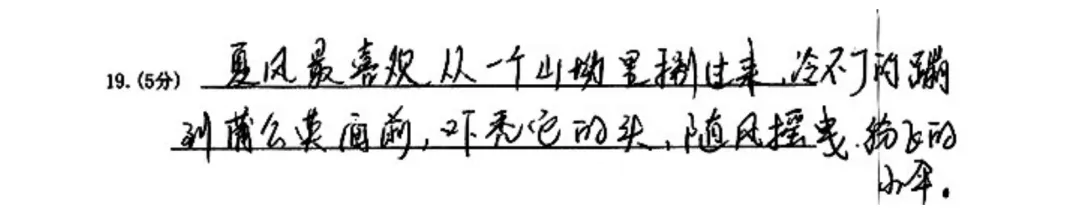 19.(5分) 夏风最喜欢从一个山坳里捌过来,冷不丁的蹦
到蒲公英面前,吓秃它的头,随风摇曳.纷飞的
小伞。